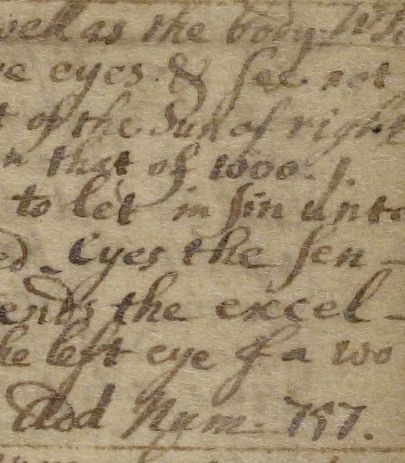 well as the body.
ve eyes & see not
t of the Sun of right
that of woo.
to let in sin unto
ed. Eyes the sen-
ends the excel-
he left eye of a wo
Aod Num. 757.